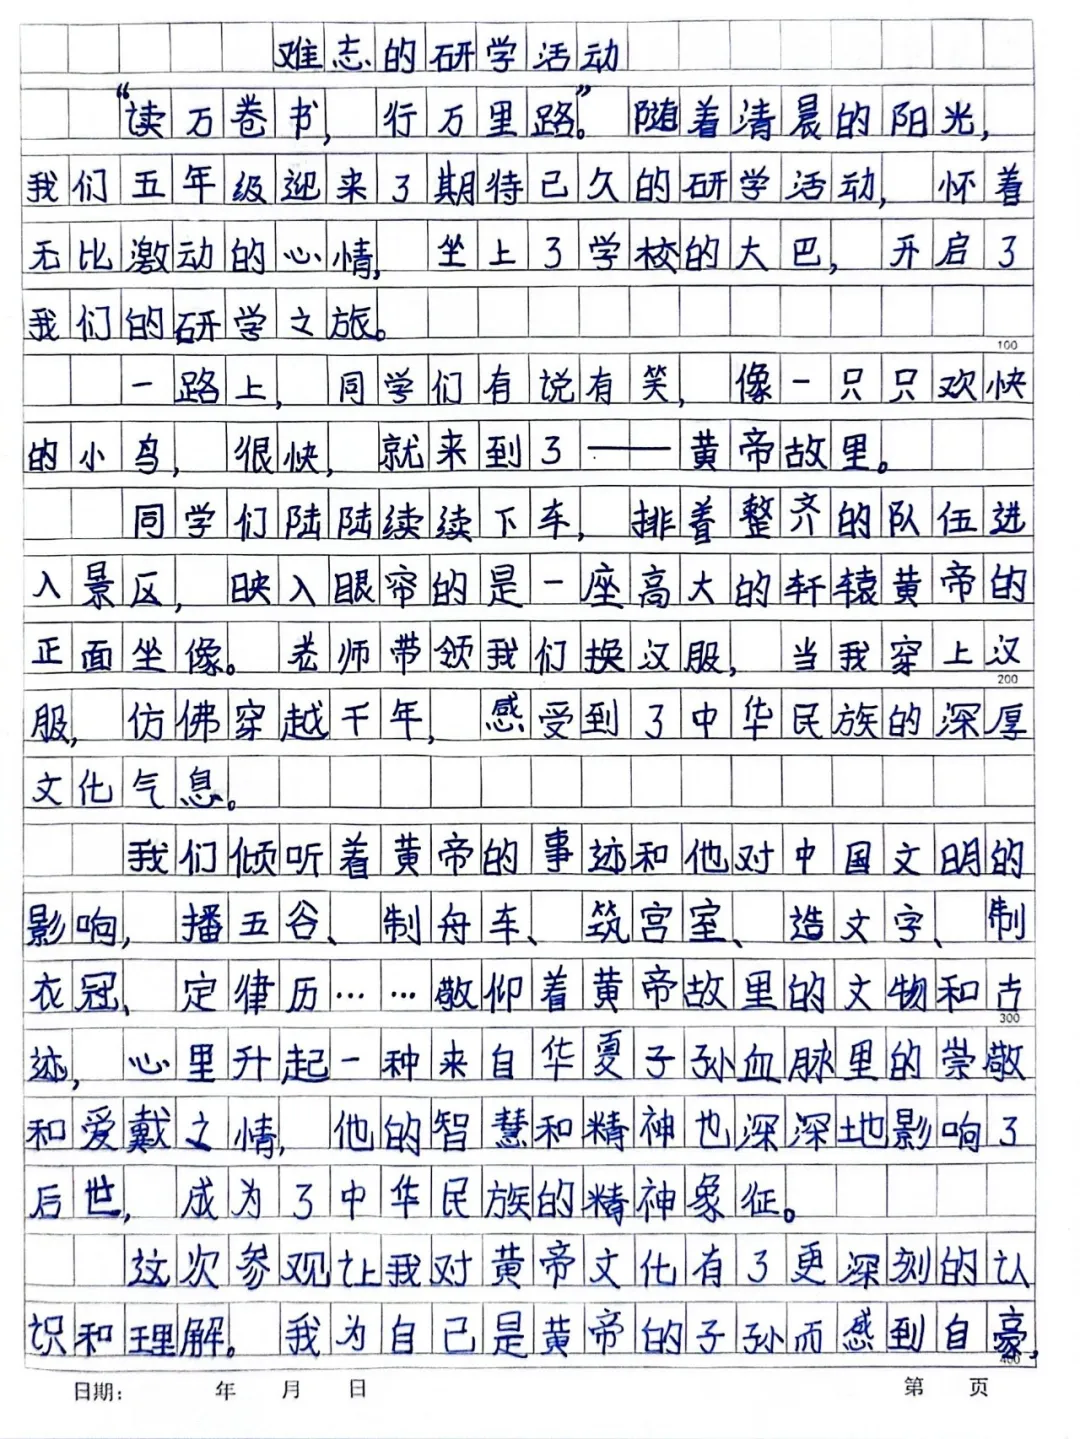 难志的研学活动
“读万卷书，行万里路”。随着清晨的阳光，
我们五年级迎来了期待已久的研学活动，怀着
无比激动的心情，坐上了学校的大巴，开启了
我们的研学之旅。
100
一路上，同学们有说有笑，像一只只欢快
的小鸟，很快，就来到了——黄帝故里。
同学们陆陆续续下车，排着整齐的队伍进
入景区，映入眼帘的是一座高大的轩辕黄帝的
正面坐像。老师带领我们换汉服，当我穿上汉
200
服，仿佛穿越千年，感受到了中华民族的深厚
文化气息。
我们倾听着黄帝的事迹和他对中国文明的
影响，播五谷、制舟车、筑宫室、造文字、制
衣冠、定律历……敬仰着黄帝故里的文物和古
300
迹，心里升起一种来自华夏子孙血脉里的崇敬
和爱戴之情，他的智慧和精神也深深地影响了
后世，成为了中华民族的精神象征。
这次参观让我对黄帝文化有了更深刻的认
识和理解。我为自己是黄帝的子孙而感到自豪，
400
日期： 年 月 日 第 页